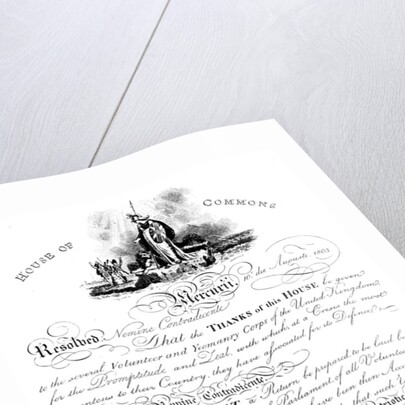 HOUSE OF COMMONS
Mercurii, 10 die Augusti, 1803.
Resolved, Nemine Contradicente,
That the THANKS of this HOUSE be given
to the several Volunteer and Yeomanry Corps of the United Kingdom,
for the Promptitude and Zeal, with which, at a Crisis the most
momentous to their Country, they have associated for its Defence.
Nemine Contradicente,
a Return be prepared to be laid
Parliament, of all Volunteer
have been then Accepted